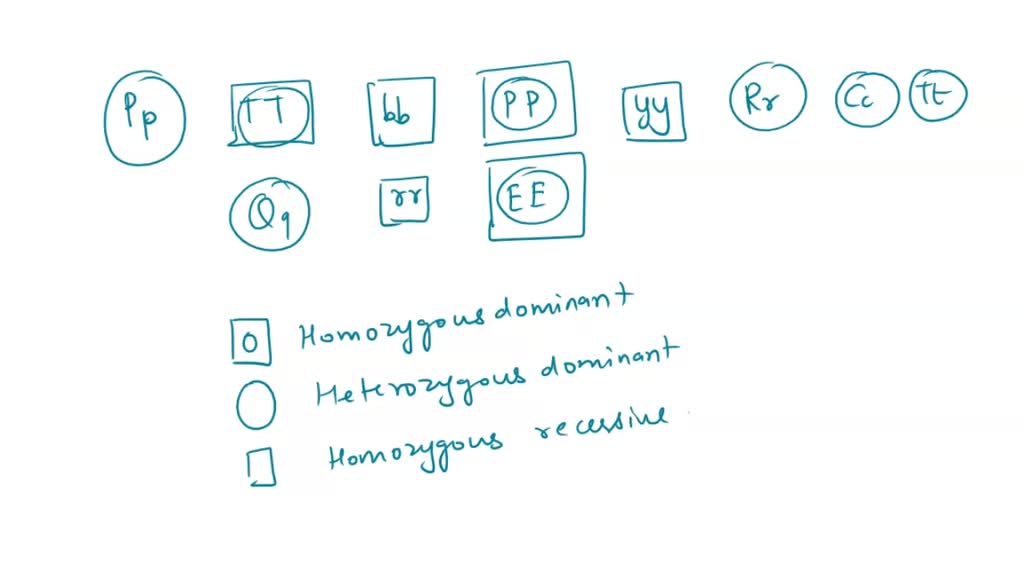 Pp TT bb PP yy Rr Cc Tt
Qq rr EE
Homozygous dominant
Heterozygous dominant
Homozygous recessive